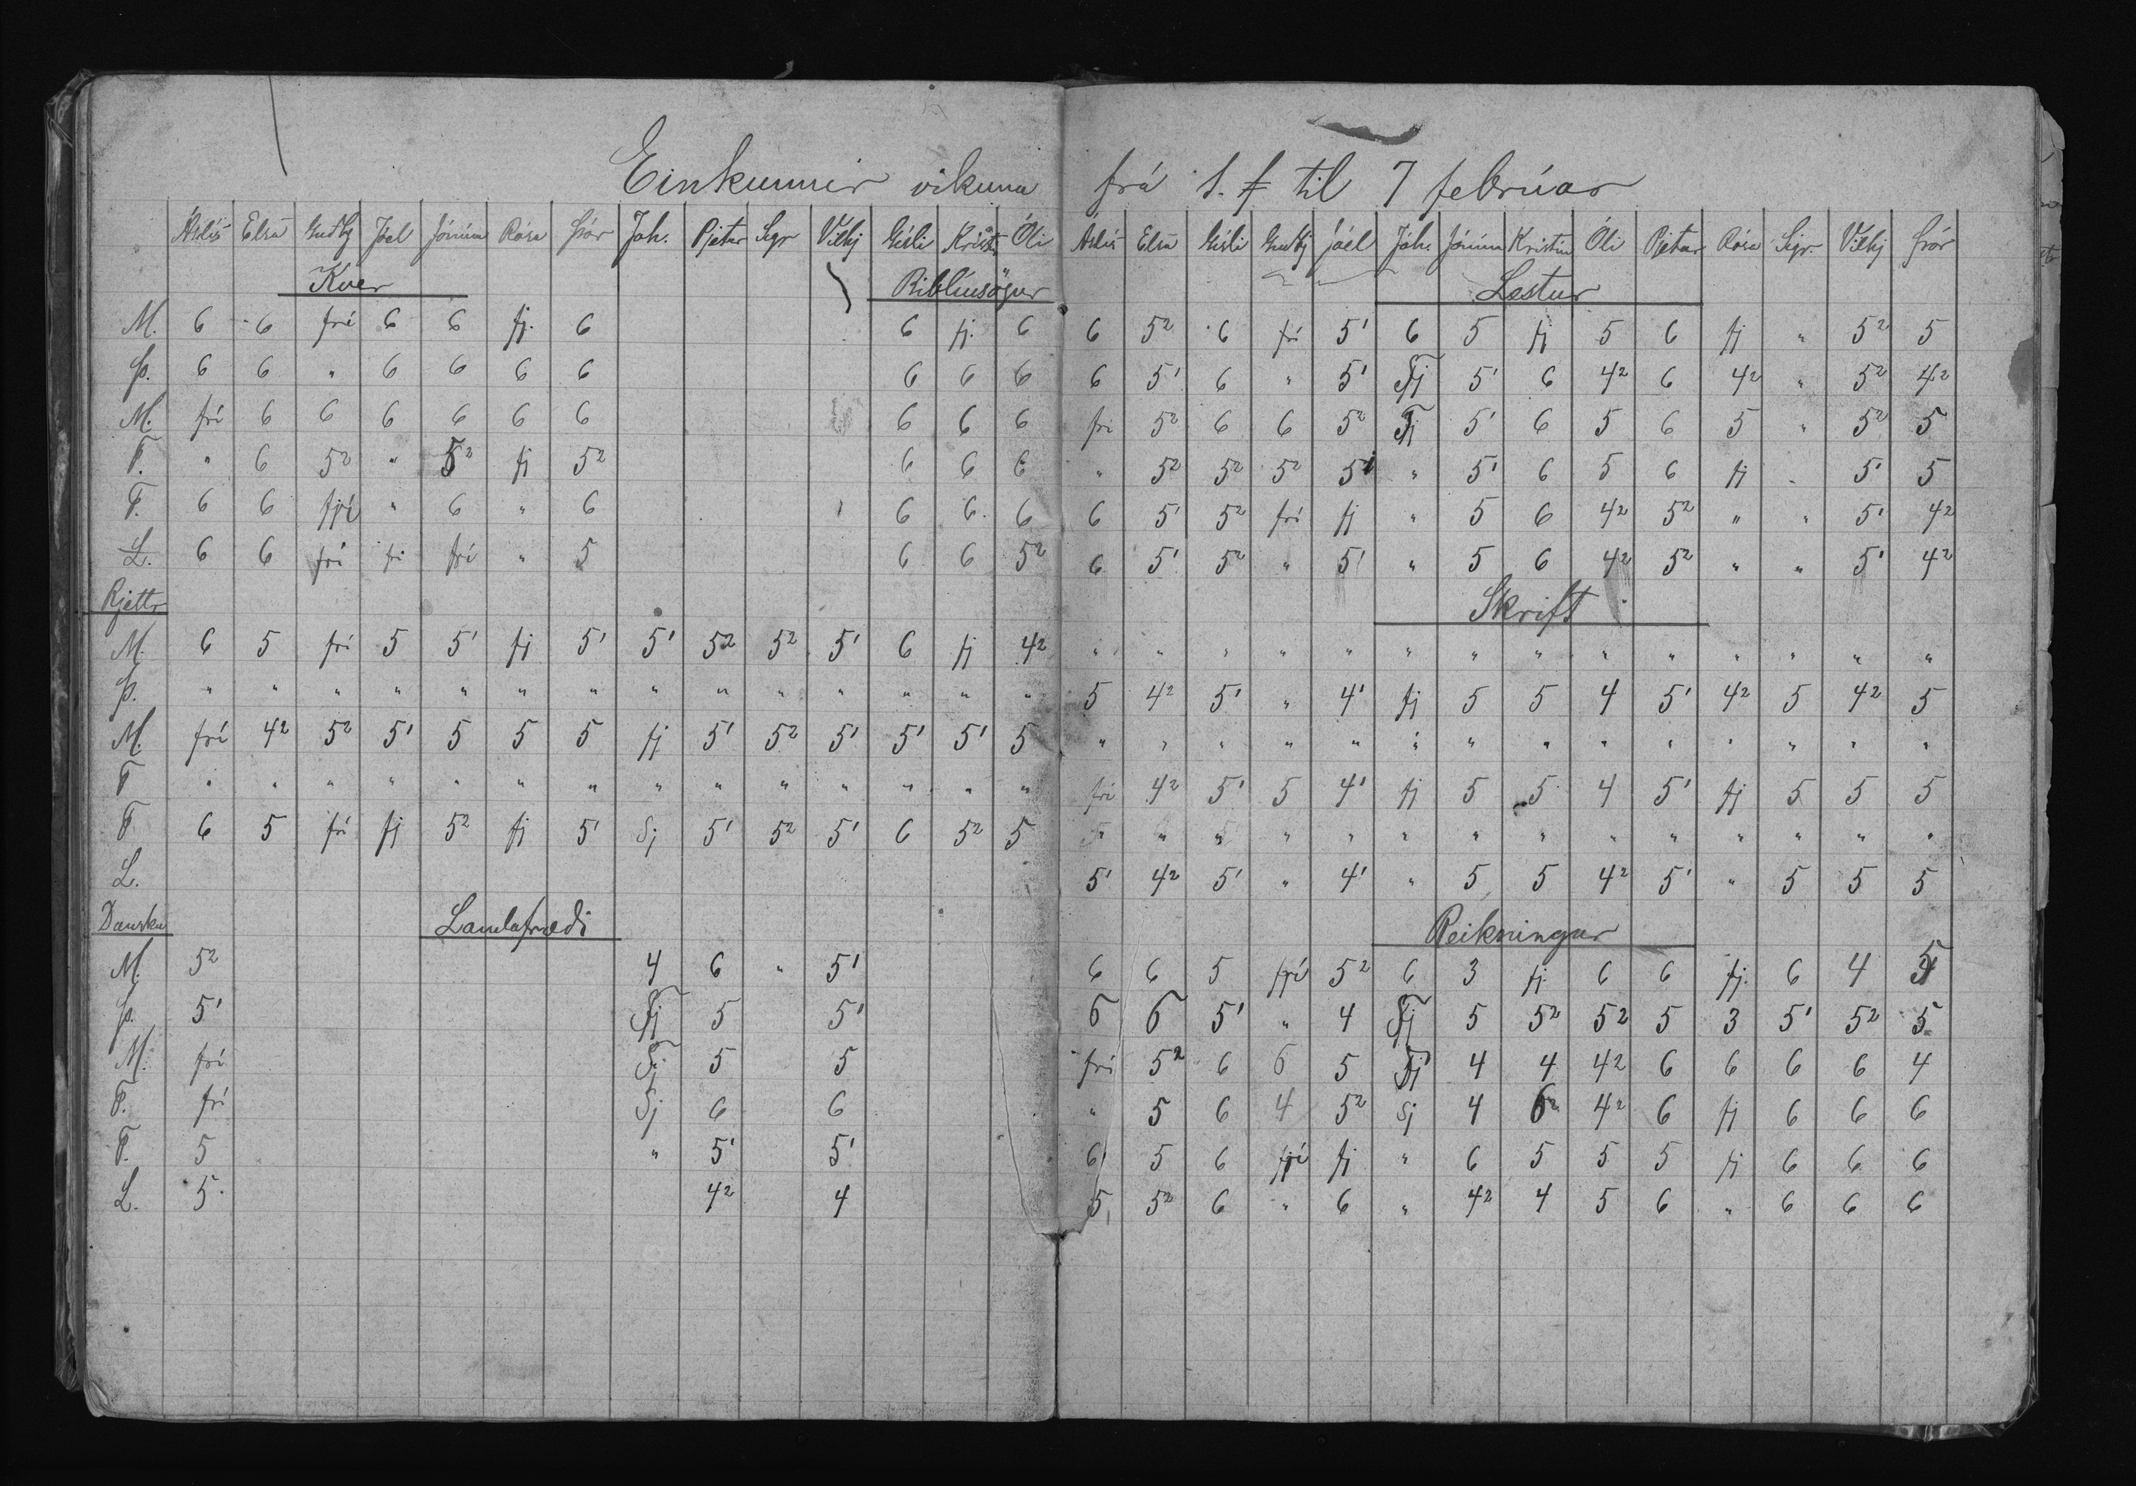 Einkunnir vikuna frá 1. f til 7 februar
Elsa Guðbj Jóel Jónina Rósa Þór Joh. Pjetur Sigr Vilhj Gísli Kristín Óli
Kver Biblíusögur
M. 6 6 frí 6 6 fj. 6 6 fj. 6
Þ. 6 6 " 6 6 6 6 6 6 6
M. frí 6 6 6 6 6 6 6 6 6
F. " 6 5² " 5² fj 5² 6 6 6
F. 6 6 frí " 6 " 6 6 6 6
L. 6 6 frí fri frí " 5 6 6 5²
Rjettr
M. 6 5 frí 5 5¹ fj 5¹ 5¹ 5² 5² 5¹ 6 fj 4²
Þ. " " " " " " " " " " " " " "
M. frí 4² 5² 5¹ 5 5 5 fj 5¹ 5² 5¹ 5¹ 5¹ 5
F " " " " " " " " " " " " " "
F 6 5 frí fj 5² fj 5¹ Sj 5¹ 5² 5¹ 6 5² 5
L.
Danska Landafrædi
M. 5² 4 6 " 5¹
Þ. 5¹ Fj 5 5¹
M. frí Fj 5 5
F. frí Sj 6 6
F. 5 " 5¹ 5¹
L. 5 4² 4
Elsa Gísli Guðbj Jóel Jóh. Jónína Kristin Óli Pjetur Rósa Sigr. Vilhj Þór
Lestur
6 5² 6 frí 5¹ 6 5 fj 5 6 fj " 5² 5
6 5¹ 6 " 5¹ Fj 5¹ 6 4² 6 4² " 5² 4²
fri 5² 6 6 5² Fj 5¹ 6 5 6 5 " 5² 5
" 5² 5² 5² 5¹ " 5¹ 6 5 6 fj " 5¹ 5
6 5¹ 5² frí fj " 5 6 4² 5² " " 5¹ 4²
6 5¹ 5² " 5¹ " 5 6 4² 5² " " 5¹ 4²
Skrift
" " " " " " " " " " " " " "
5 4² 5¹ " 4¹ fj 5 5 4 5¹ 4² 5 4² 5
" " " " " " " " " " " " " "
frí 4² 5¹ 5 4¹ fj 5 5 4 5¹ fj 5 5 5
" " " " " " " " " " " " " "
5¹ 4² 5¹ " 4¹ " 5 5 4² 5¹ " 5 5 5
Reikningur
6 6 5 frí 5² 6 3 fj. 6 6 fj. 6 4
6 6 5¹ " 4 Fj 5 5² 5² 5 3 5¹ 5² 5
frí 5² 6 6 5 Fj 4 4 4² 6 6 6 6 4
" 5 6 4 5² Sj 4 6² 4² 6 fj 6 6 6
6 5 6 frí fj " 6 5 5 5 fj 6 6 6
5 5² 6 " 6 " 4² 4 5 6 " 6 6 6